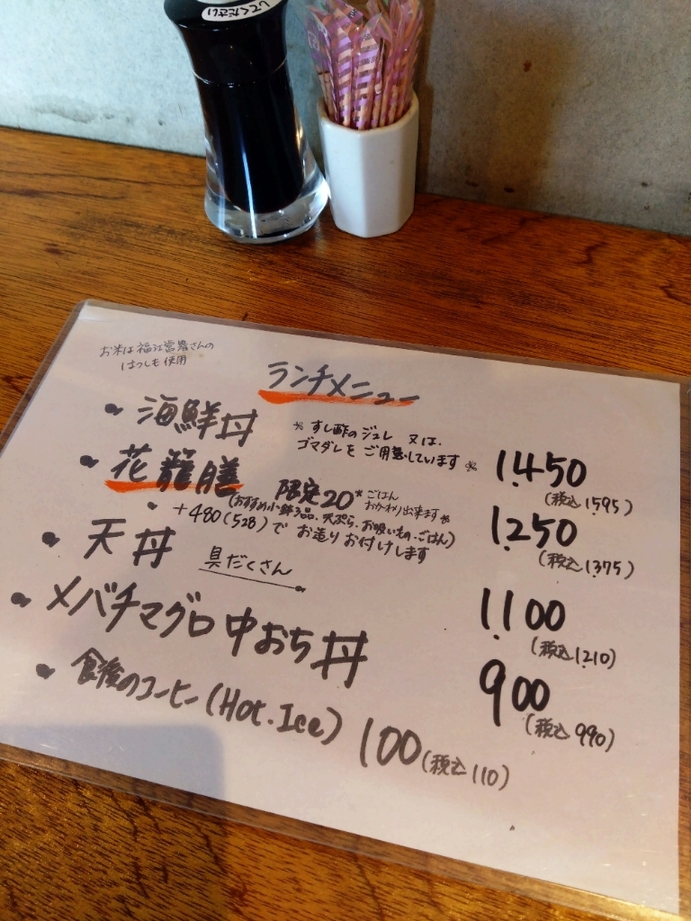 してください
お米は福江営農さんの
はつしも使用
ランチメニュー
海鮮丼 ※すし酢のジュレ 又は、
ゴマダレをご用意しています※ 1.450
(税込1595)
花籠膳 限定20* ごはん
おかわり出来ます※ 1.250
(おすすめ小鉢3品、天ぷら、お吸いもの、ごはん) (税込1.375)
+480(528)で お造りお付けします
天丼 具だくさん 1.100
(税込1.210)
メバチマグロ中おち丼 900
(税込990)
食後のコーヒー(Hot.Ice) 100(税込110)